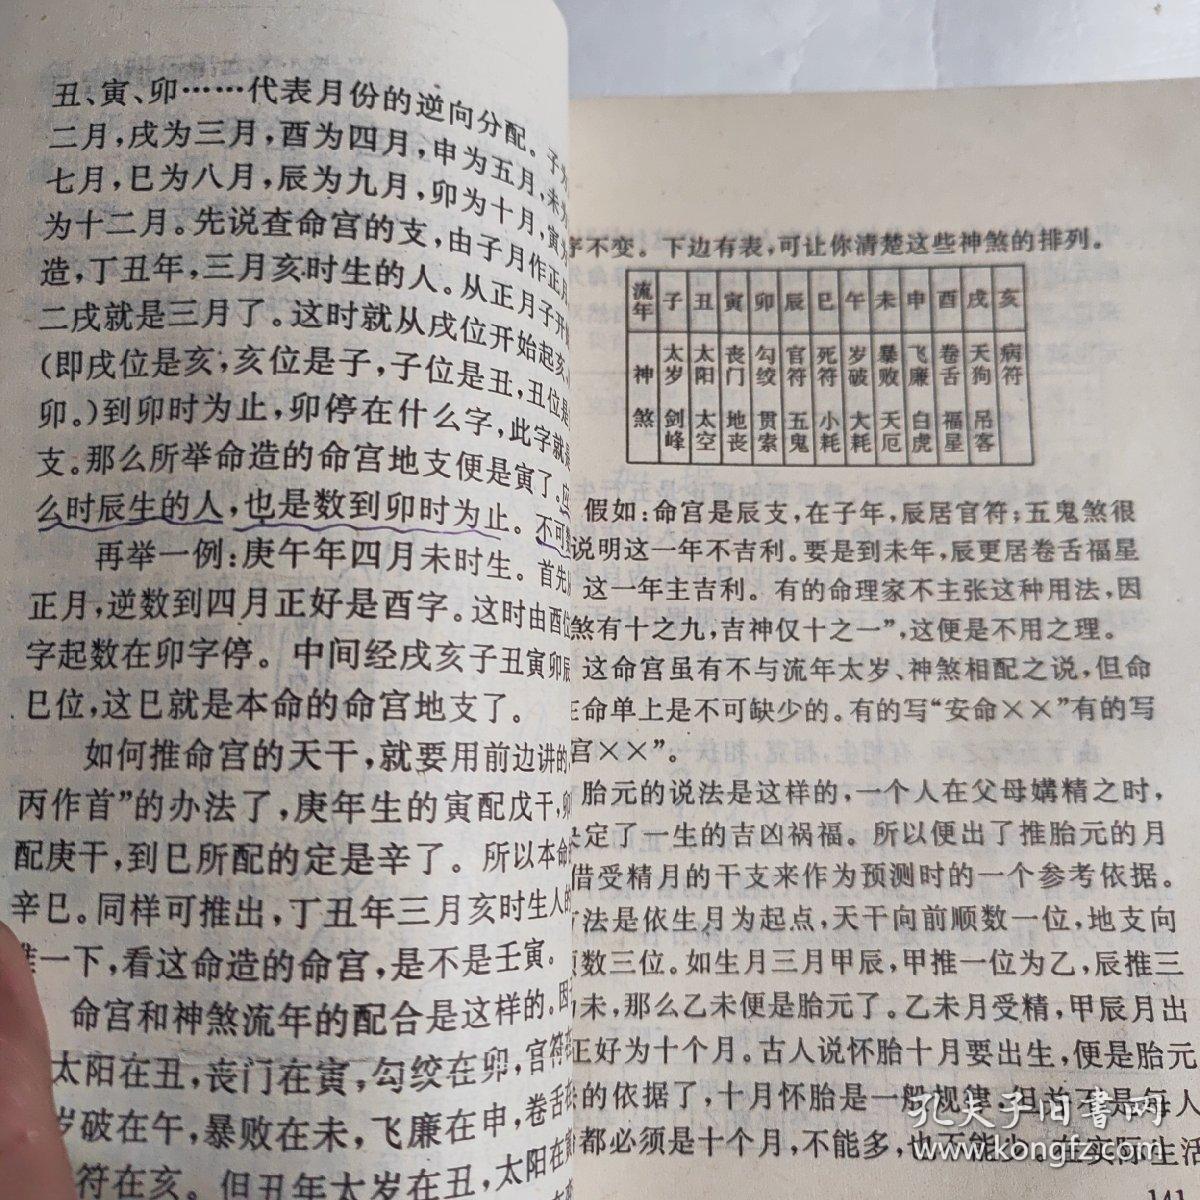 丑、寅、卯……代表月份的逆向分配。子为
二月，戌为三月，酉为四月，申为五月，未为
七月，巳为八月，辰为九月，卯为十月，寅为
为十二月。先说查命宫的支，由子月作正月
造，丁丑年，三月亥时生的人。从正月子开始
二戌就是三月了。这时就从戌位开始起亥、
(即戌位是亥；亥位是子，子位是丑，丑位是
卯。)到卯时为止，卯停在什么字，此字就是
支。那么所举命造的命宫地支便是寅了。
么时辰生的人，也是数到卯时为止。不可
再举一例：庚午年四月未时生。首先
正月，逆数到四月正好是酉字。这时由酉位
字起数在卯字停。中间经戌亥子丑寅卯辰
巳位，这巳就是本命的命宫地支了。
如何推命宫的天干，就要用前边讲的
丙作首”的办法了，庚年生的寅配戊干，卯
配庚干，到巳所配的定是辛了。所以本命
辛巳。同样可推出，丁丑年三月亥时生人的
推一下，看这命造的命宫，是不是壬寅。
命宫和神煞流年的配合是这样的。因
太阳在丑，丧门在寅，勾绞在卯，官符
岁破在午，暴败在未，飞廉在申，卷舌
符在亥。但丑年太岁在丑，太阳在寅
字不变。下边有表，可让你清楚这些神煞的排列。
流年 子 丑 寅 卯 辰 巳 午 未 申 酉 戌 亥
神煞 太岁 太阳 丧门 勾绞 官符 死符 岁破 暴败 飞廉 卷舌 天狗 病符
剑峰 太空 地丧 贯索 五鬼 小耗 大耗 天厄 白虎 福星 吊客
假如：命宫是辰支，在子年，辰居官符；五鬼煞很
说明这一年不吉利。要是到未年，辰更居卷舌福星
这一年主吉利。有的命理家不主张这种用法，因
煞有十之九，吉神仅十之一”，这便是不用之理。
这命宫虽有不与流年太岁、神煞相配之说，但命
在命单上是不可缺少的。有的写“安命××”有的写
宫××”。
胎元的说法是这样的，一个人在父母媾精之时，
定了一生的吉凶祸福。所以便出了推胎元的月
借受精月的干支来作为预测时的一个参考依据。
方法是依生月为起点，天干向前顺数一位，地支向
顺数三位。如生月三月甲辰，甲推一位为乙，辰推三
为未，那么乙未便是胎元了。乙未月受精，甲辰月出
正好为十个月。古人说怀胎十月要出生，便是胎元
的依据了，十月怀胎是一般规律，但并不是每人
都必须是十个月，不能多，也不能少。在实际生活
141
孔夫子旧书网
www.kongfz.com